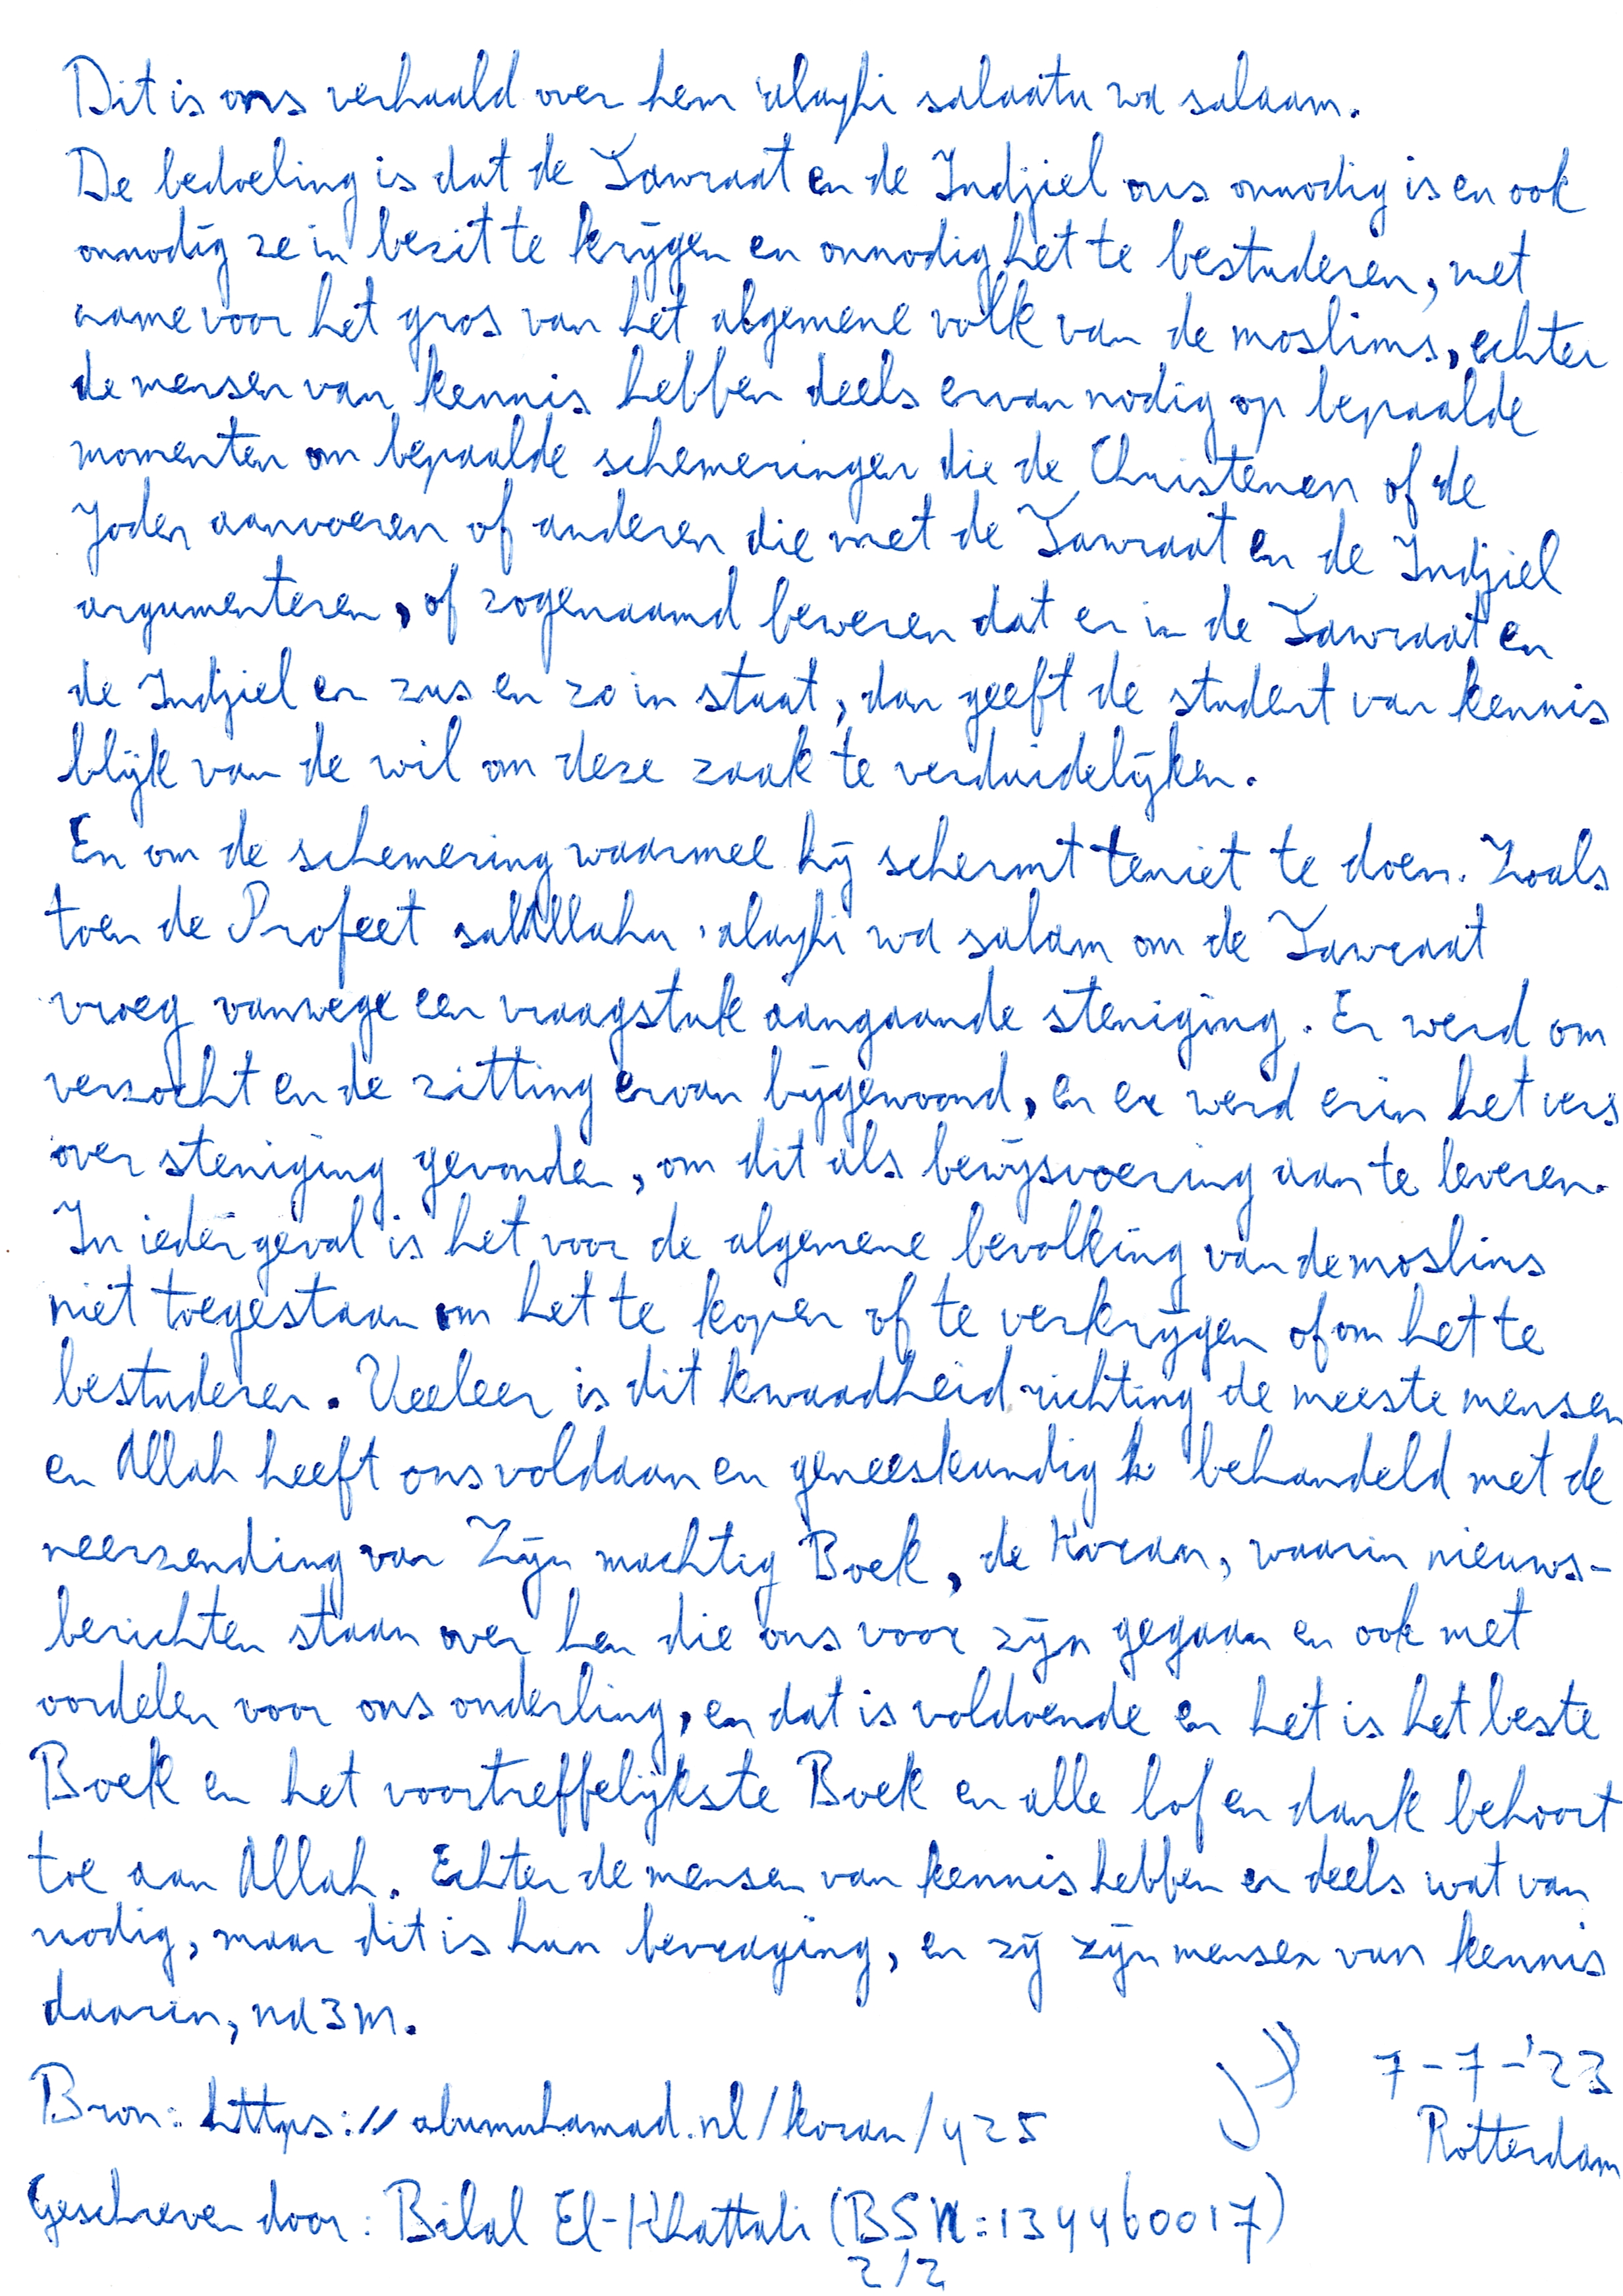 Dit is ons verhaald over hem 'alayhi salaatu wa salaam.
De bedoeling is dat de Tawraat en de Indjiel ons onnodig is en ook
onnodig ze in bezit te krijgen en onnodig het te bestuderen, met
name voor het gros van het algemene volk van de moslims, echter
de mensen van kennis hebben deels ervan nodig op bepaalde
momenten om bepaalde schemeringen die de Christenen of de
Joden aanvoeren of anderen die met de Tawraat en de Indjiel
argumenteren, of zogenaamd beweren dat er in de Tawraat en
de Indjiel er zus en zo in staat, dan geeft de student van kennis
blijk van de wil om deze zaak te verduidelijken.
En om de schemering waarmee hij schermt teniet te doen. Zoals
toen de Profeet salAllahu 'alayhi wa salam om de Tawraat
vroeg vanwege een vraagstuk aangaande steniging. Er werd om
verzocht en de zitting ervan bijgewoond, en er werd erin het vers
over steniging gevonden, om dit als bewijsvoering aan te leveren.
In ieder geval is het voor de algemene bevolking van de moslims
niet toegestaan om het te kopen of te verkrijgen of om het te
bestuderen. Veeleer is dit kwaadheid richting de meeste mensen
en Allah heeft ons voldaan en geneeskundig behandeld met de
neerzending van Zijn machtig Boek, de Koran, waarin nieuws-
berichten staan over hen die ons voor zijn gegaan en ook met
vordelen voor ons onderling, en dat is voldoende en het is het beste
Boek en het voortreffelijkste Boek en alle lof en dank behoort
toe aan Allah. Echter de mensen van kennis hebben er deels wat van
nodig, maar dit is hun bevraging, en zij zijn mensen van kennis
daarin, na3m.
Bron: https://abumuhamad.nl/koran/425
7-7-'23
Rotterdam
Geschreven door: Bilal El-Khattabi (BSN:134460017)
2/2